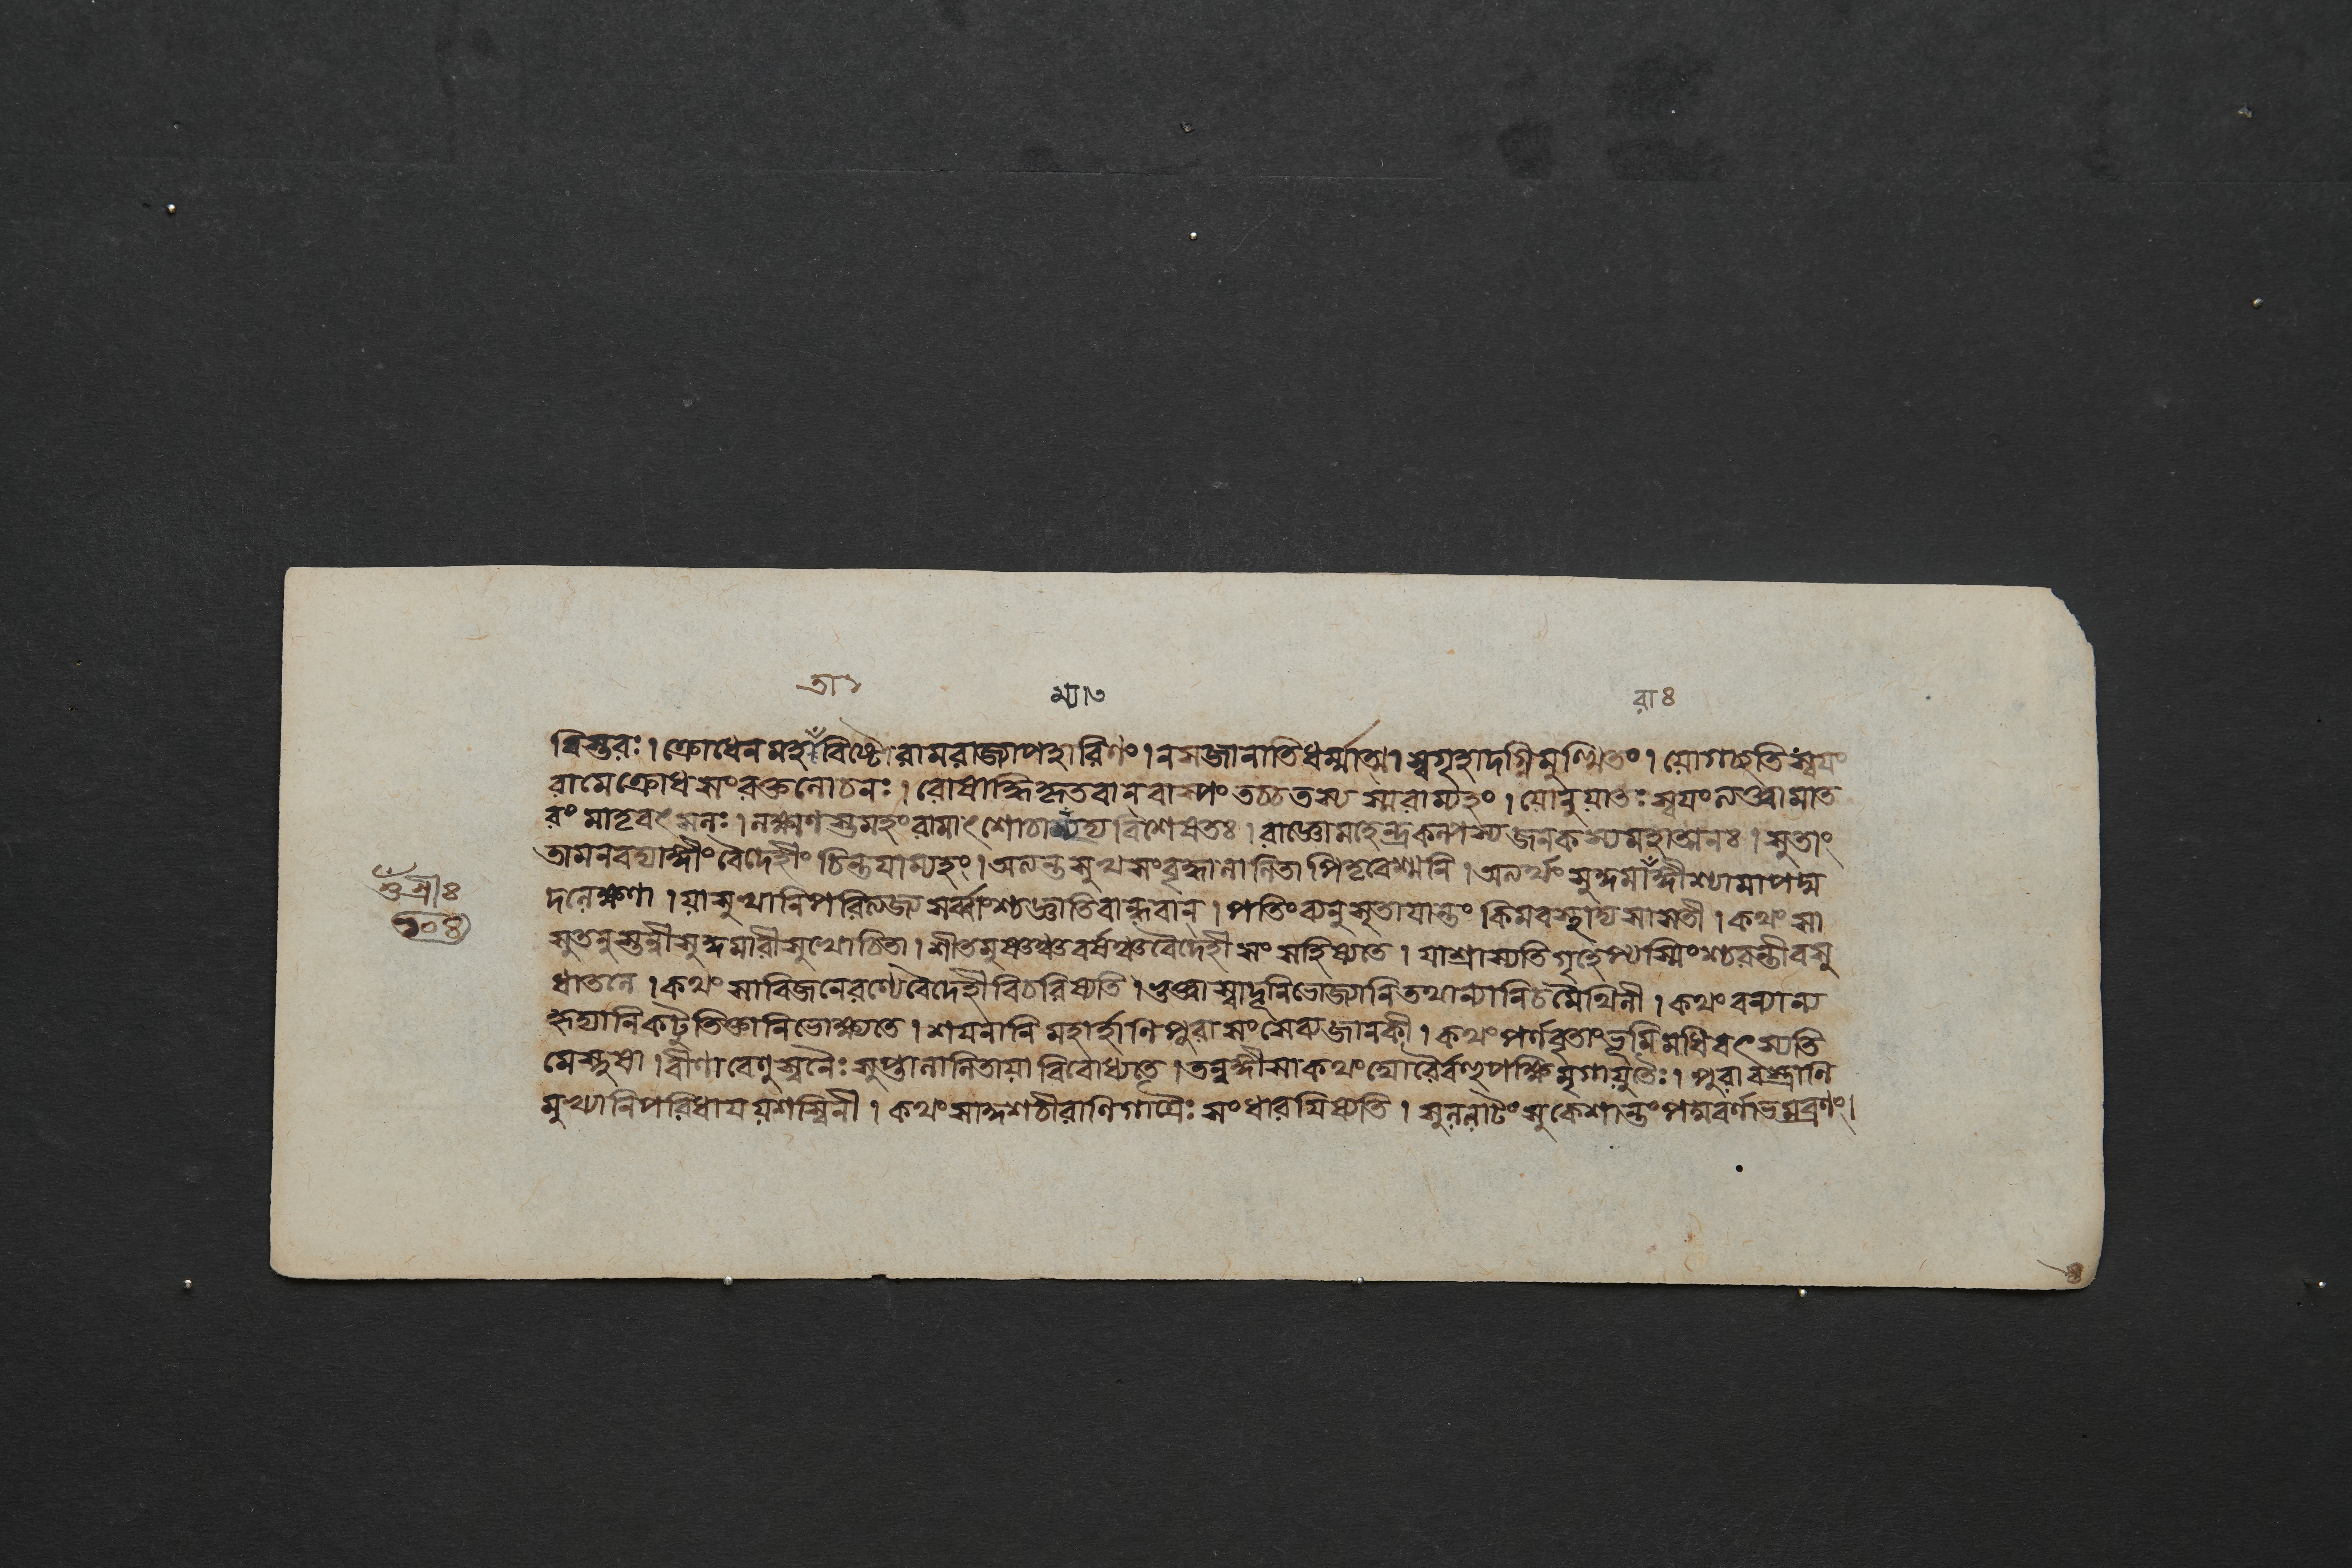 তা১ ম্যা৩ রাঃ
বিস্তরঃ। ক্রোধেন মহাঁবিষ্টো রামরাজ্যাপহারিণং। ন স জানাতি ধর্ম্মাত্মা স্বগৃহাদগ্নিমুত্থিতং। যো গচ্ছতি স্বয়ং
রামে ক্রোধসংরক্তলোচনঃ। রোষাদ্ধি হৃতবান বাস্পং তচ্চ তস্য স্মরাম্যহং। যোনুযাতঃ স্বয়ং লক্ষ্ম্যা মাত
রং মাতৃবৎসলঃ। লক্ষ্মণস্তমহং রামাৎ শোচাম্যদ্য বিশেষতঃ। রাজ্ঞো মহেন্দ্রকল্পস্য জনকস্য মহাত্মনঃ। সুতাং
তামনবদ্যাঙ্গীং বৈদেহীং চিন্তয়াম্যহং। অত্যন্তসুখসংবৃদ্ধা লালিতা পিতৃবেশ্মনি। অত্যর্থং সুকুমাঁরাঙ্গী শ্যামা পদ্ম
ওঁশ্রীঃ
১০৪
দলেক্ষণা। যা সুখানি পরিত্যজ্য সর্ব্বাংশ্চ জ্ঞাতিবান্ধবান্। পতিং বনুসৃতা যান্তং কিমবস্থাদ্য সা সতী। কথং সা
সুতনুস্তন্বী সুকুমারী সুখোচিতা। শীতমুষ্ণঞ্চ বর্ষঞ্চ বৈদেহী সংসহিষ্যতে। যা শ্রাম্যতি গৃহেপ্যস্মিংশ্চরন্তী বসু
ধাতলে। কথং সা বিজনেরণ্যে বৈদেহী বিচরিষ্যতি। ভুক্ত্বা স্বাদূনি ভোজ্যানি তথান্যানি চ মৈথিলী। কথং বন্যান্য
হৃদ্যানি কটুতিক্তানি ভোক্ষ্যতে। শয়নানি মহার্হাণি পুরা সংসেব্য জানকী। কথং পর্ণবৃতাং ভূমিমধিবৎস্যতি
মে স্নুষা। বীণাবেণুস্বনৈঃ সুপ্তা লালিতা যা বিবোধ্যতে। তন্বঙ্গী সা কথং ঘোরৈর্বণ্যপক্ষিমৃগাযুতৈঃ। পুরা বস্ত্রাণি
মুখ্যানি পরিধায় যশস্বিনী। কথং সা কুশচীরাণি গাত্রৈঃ সংধারয়িষ্যতি। সুললাটং সুকেশান্তং পদ্মবর্ণাভমব্রণং।